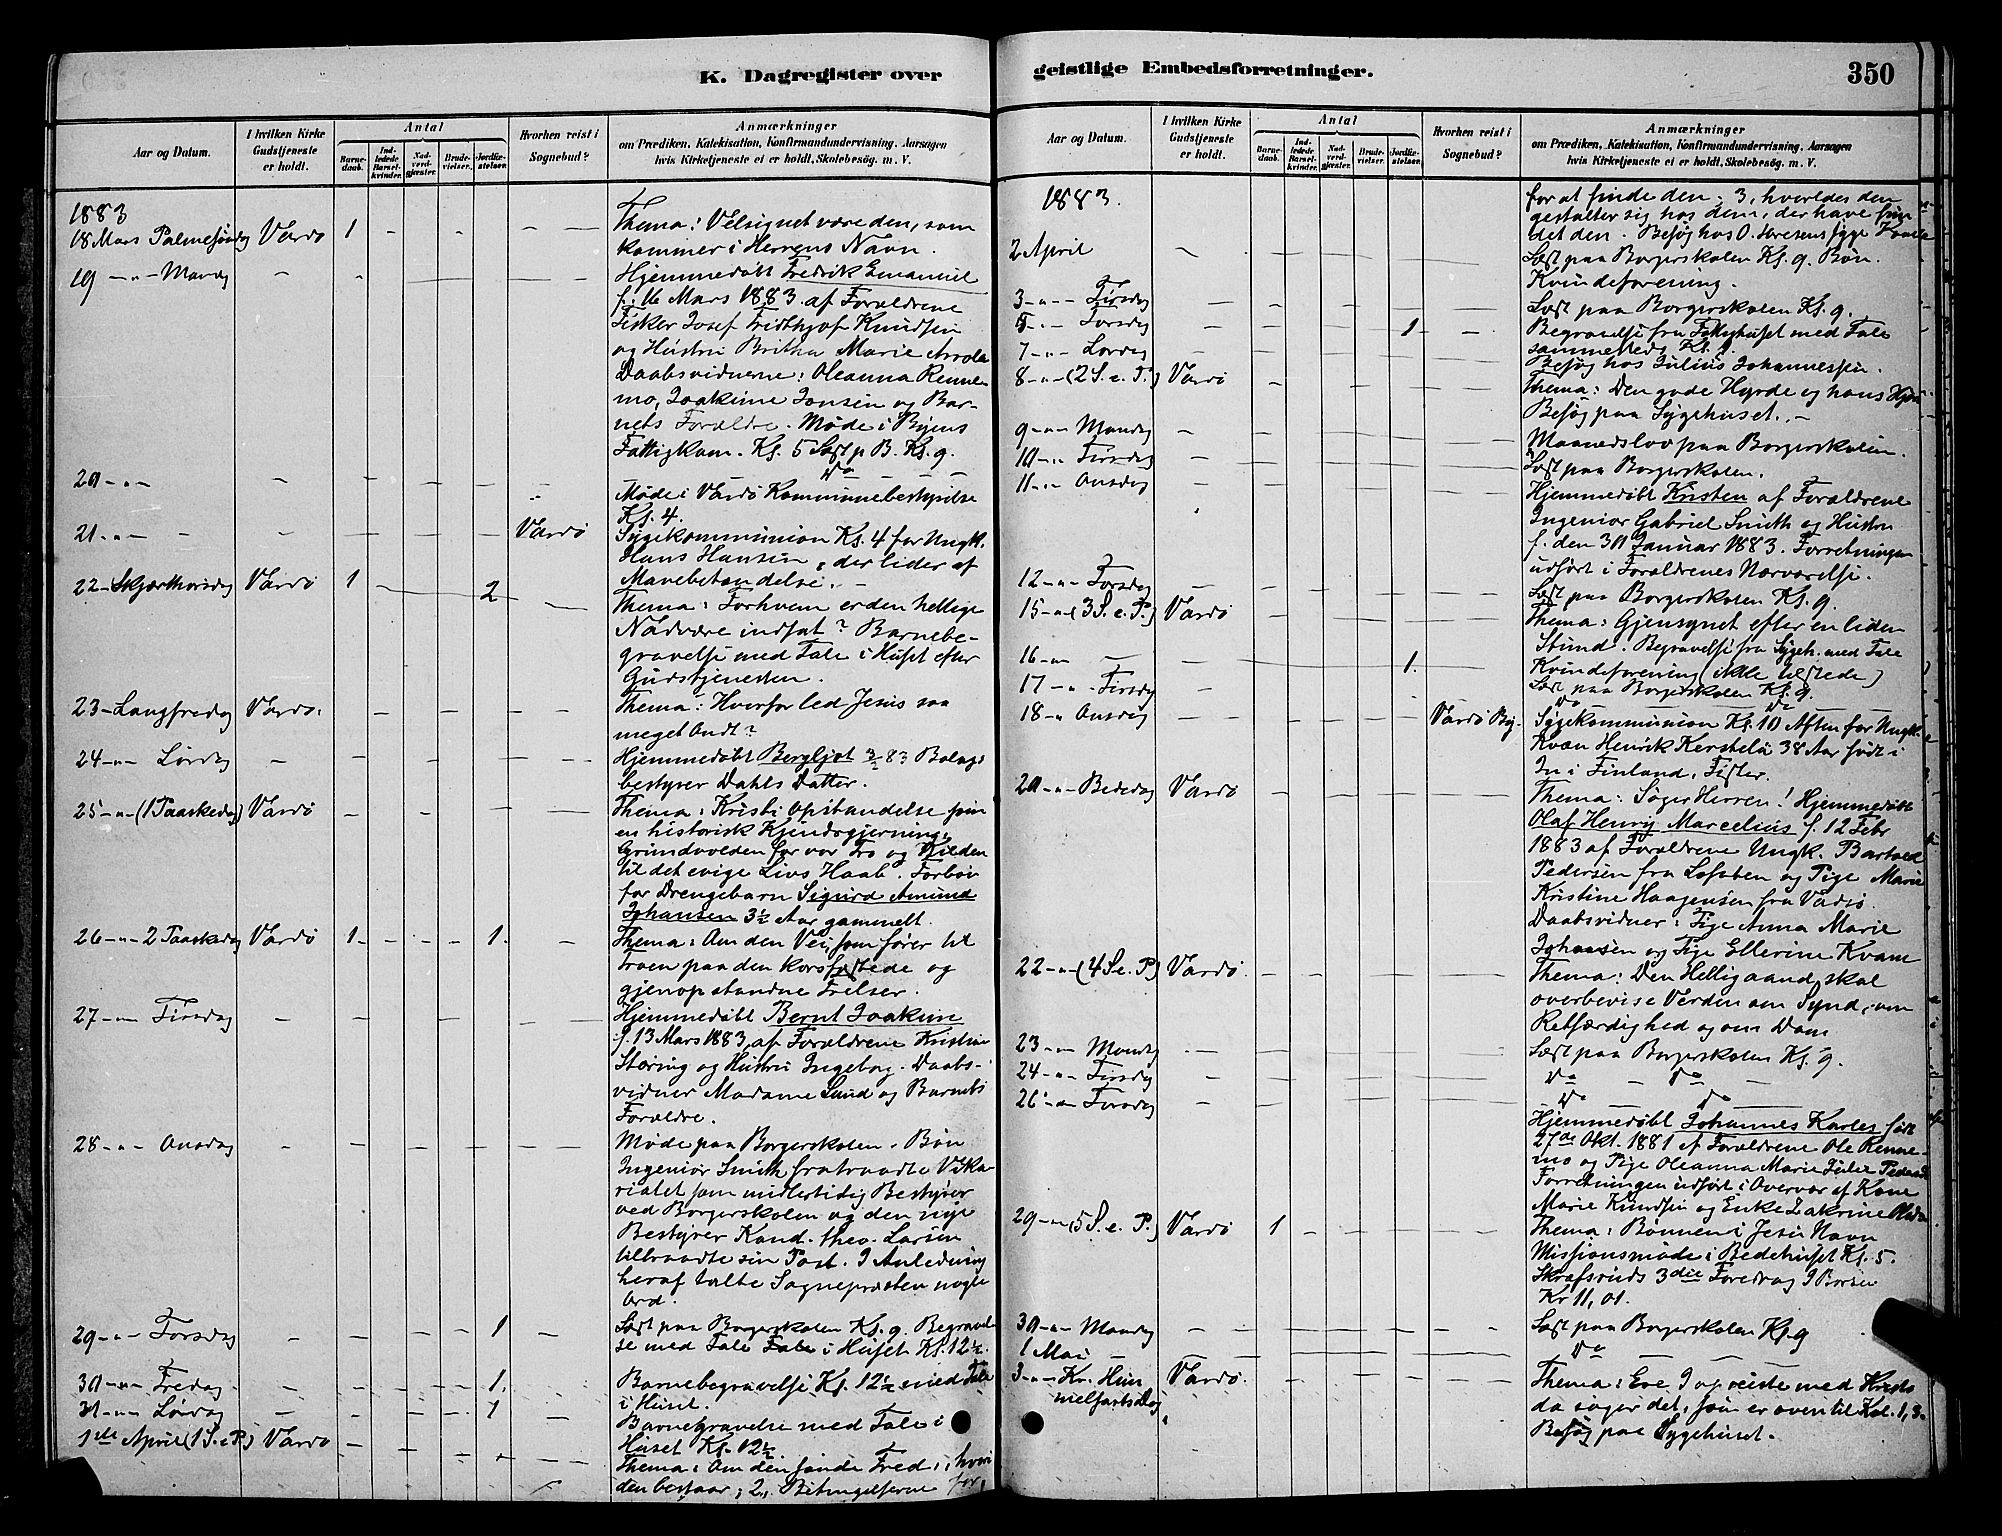 K. Dagregister over
geistlige Embedsforretninger.
350
Aar og Datum.
I hvilken Kirke Gudstjeneste er holdt.
Antal
Barnedaab.
Indledede Barselkvinder.
Nadverdgjæster.
Brudevielser.
Jordfæstelser.
Hvorhen reist i Sognebud?
Anmærkninger
om Prædiken, Katekisation, Konfirmandundervisning, Aarsagen
hvis Kirketjeneste ei er holdt, Skolebesøg. m. V.
1883
18 Mars Palmesøndag Vardø 1 Thema: Velsignet være den, som
kommer i Herrens Navn.
19 -"- Mandag Hjemmedøbt Fredrik Emanuel
f. 16 Mars 1883 af Forældrene
Fisker Josef Fridthjof Knudsen
og Hustru Britha Marie Arvola
Daabsvidnerne: Oleanna Rennemo,
Joakime Jonsen og Barnets
Forældre. Møde i Byens
Fattigkom. Kl. 5 Læst p B. Kl. 9.
20 -"- Do
Møde i Vardø Kommunebestyrelse
Kl. 4.
21 -"- Vardø Sygekommunion Kl. 4 for Ungk.
Hans Hansen, der lider af
Mavebetændelse.
22 - Skjærthorsdag Vardø 1 2 Thema: Forhvem er den hellige
Nadvere indsat? Barnebegravelse
med Tale i Huset efter
Gudstjenesten.
23 - Langfredag Vardø. Thema: Hvorfor led Jesus saa
meget Ondt?
24 -"- Lørdag Hjemmedøbt Bergljot 3/2 83 Bolagsbestyrer
Dahls Datter.
25 -"- (1 Paaskedag) Vardø Thema: Kristi Opstandelse som
en historisk Kjendsgjerning,
Grundvolden for vor Tro og Kilden
til det evige Livs Haab. Forbøn
for Drengebarn Sigurd Amund
Johansen 3 1/2 Aar gammelt.
26 -"- 2 Paaskedag Vardø 1 1 Thema: Om den Vei, som fører til
Troen paa den korsfæstede og
gjenopstandne Frelser.
27 -"- Tirsdag Hjemmedøbt Bernt Joakim
f. 13 Mars 1883, af Forældrene Kristian
Støring og Hustru Ingeborg. Daabsvidner
Madame Lund og Barnets
Forældre.
28 -"- Onsdag Møde paa Borgerskolen. Bøn
Ingeniør Smith fratraadte Vikariatet
som midlertidig Bestyrer
ved Borgerskolen og den nye
Bestyrer Kand. theo. Larsen
tiltraadte sin Post. I Anledning
heraf talte Sognepræsten nogle
Ord.
29 -"- Torsdag 1 Læst paa Borgerskolen Kl. 9. Begravelse
med Tale Tale i Huset Kl. 12 1/2.
30 -"- Fredag 1 Barnebegravelse Kl. 12 1/2 med Tale
i Huset.
31 -"- Lørdag 1 Barnebegravelse med Tale i
Huset Kl. 12 1/2
1ste April (1 S. e P.) Vardø Thema: Om den sande Fred, 1, hvori
den bestaar; 2, Betingelserne for,
Aar og Datum.
I hvilken Kirke Gudstjeneste er holdt.
Antal
Barnedaab.
Indledede Barselkvinder.
Nadverdgjæster.
Brudevielser.
Jordfæstelser.
Hvorhen reist i Sognebud?
Anmærkninger
om Prædiken, Katekisation, Konfirmandundervisning, Aarsagen
hvis Kirketjeneste ei er holdt, Skolebesøg. m. V.
1883. for at finde den; 3, hvorledes den
gestalter sig hos dem, der have fundet
den. Besøg hos O. syge Kone
2 April Læst paa Borgerskolen Kl. 9. Bøn.
Kvindeforening.
3 -"- Tirsdag Læst paa Borgerskolen Kl. 9.
5 -"- Torsdag 1 Begravelse fra Fattighuset med Tale
sammesteds Kl. 1.
7 -"- Lørdag Besøg hos Julius Johannessen.
8 -"- (2 S. e. P.) Vardø Thema: Den gode Hyrde og hans Hjord
Besøg paa Sygehuset.
9 -"- Mandag Maanedslov paa Borgerskolen.
10 -"- Tirsdag Læst paa Borgerskolen.
11 -"- Onsdag Hjemmedøbt Kristen af Forældrene
Ingeniør Gabriel Smith og Hustru
f. den 30 Januar 1883. Forretningen
udført i Forældrenes Nærværelse.
12 -"- Torsdag Læst paa Borgerskolen Kl. 9.
15 -"- (3 S. e. P.) Vardø Thema: Gjensynet efter en liden
Stund. Begravelse fra Sygeh. med Tale
16 -"- 1. Kvindeforening (ikke tilstede)
17 -"- Tirsdag Læst paa Borgerskolen Kl. 9.
18 -"- Onsdag Vardø By. Do Do
Sygekommunion Kl. 10 Aften for Ungk.
Kvæn Henrik Kerstelä 38 Aar født i
In i Finland, Fisker.
20 -"- Bededag Vardø Thema: Søger Herren! Hjemmedøbt
Olaf Henry Marcelius f. 12 Febr
1883 af Forældrene Ungk. Bartold
Pedersen fra Lofoten og Pige Marie
Kristine Haagensen fra Vadsø.
Daabsvidner: Pige Anna Marie
Johansen og Pige Ellerine Kvam
22 -"- (4 S. e. P) Vardø. Thema: Den Helligaand skal
overbevise Verden om Synd, om
Retfærdighed og om Dom
23 -"- Mandag Læst paa Borgerskolen Kl. 9.
24 -"- Tirsdag Do - Do -
26 -"- Torsdag Do Do
Hjemmedøbt Johannes Karles født
27de Okt. 1881 af Forældrene Ole Rennemo
og Pige Oleanna Marie Pedersd.
Forretningen udført i Overvær af Kone
Marie Knudsen og Enke Zakrine
29 -"- (5 S. e. P.) Vardø 1 Thema: Bønnen i Jesu Navn
Missionsmøde i Bedehuset Kl. 5.
Skrefsruds 3die Foredrag I Børsen
Kr 11,01.
30 -"- Mandag Læst paa Borgerskolen Kl. 9
1 Mai Do
3 -"- Kr. Himmelfartsdag Vardø. Thema: Ere I opreiste med Kristo
da søger det, som er oventil Kol. 1, 3.
Besøg paa Sygehuset.